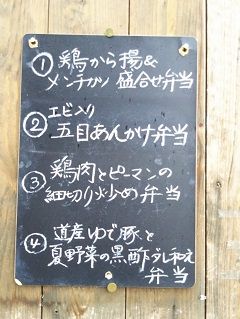 ① 鶏から揚&
メンチカツ 盛合せ弁当
② エビ入り
五目あんかけ弁当
③ 鶏肉とピーマンの
細切り炒め弁当
④ 道産ゆで豚と
夏野菜の黒酢ダレ和え
弁当